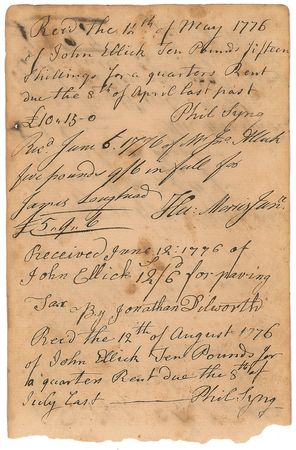 Recd the 12th of May 1776
of John Ellick Ten Pounds fifteen
shillings for a quarters Rent
due the 8th of April last past
£10=15=0 Phil Syng
Recd June 6. 1776 of Mr Jno Allick
five pounds 9/6 in full for
James Loughead
£5.9.6 Tho: Jun
Received June 12: 1776 of
John Ellick 12/6d for paving
Tax By Jonathan Dilworth
Recd the 12th of August 1776
of John Ellick Ten Pounds for
a quarters Rent due the 8th of
July Last Phil Syng